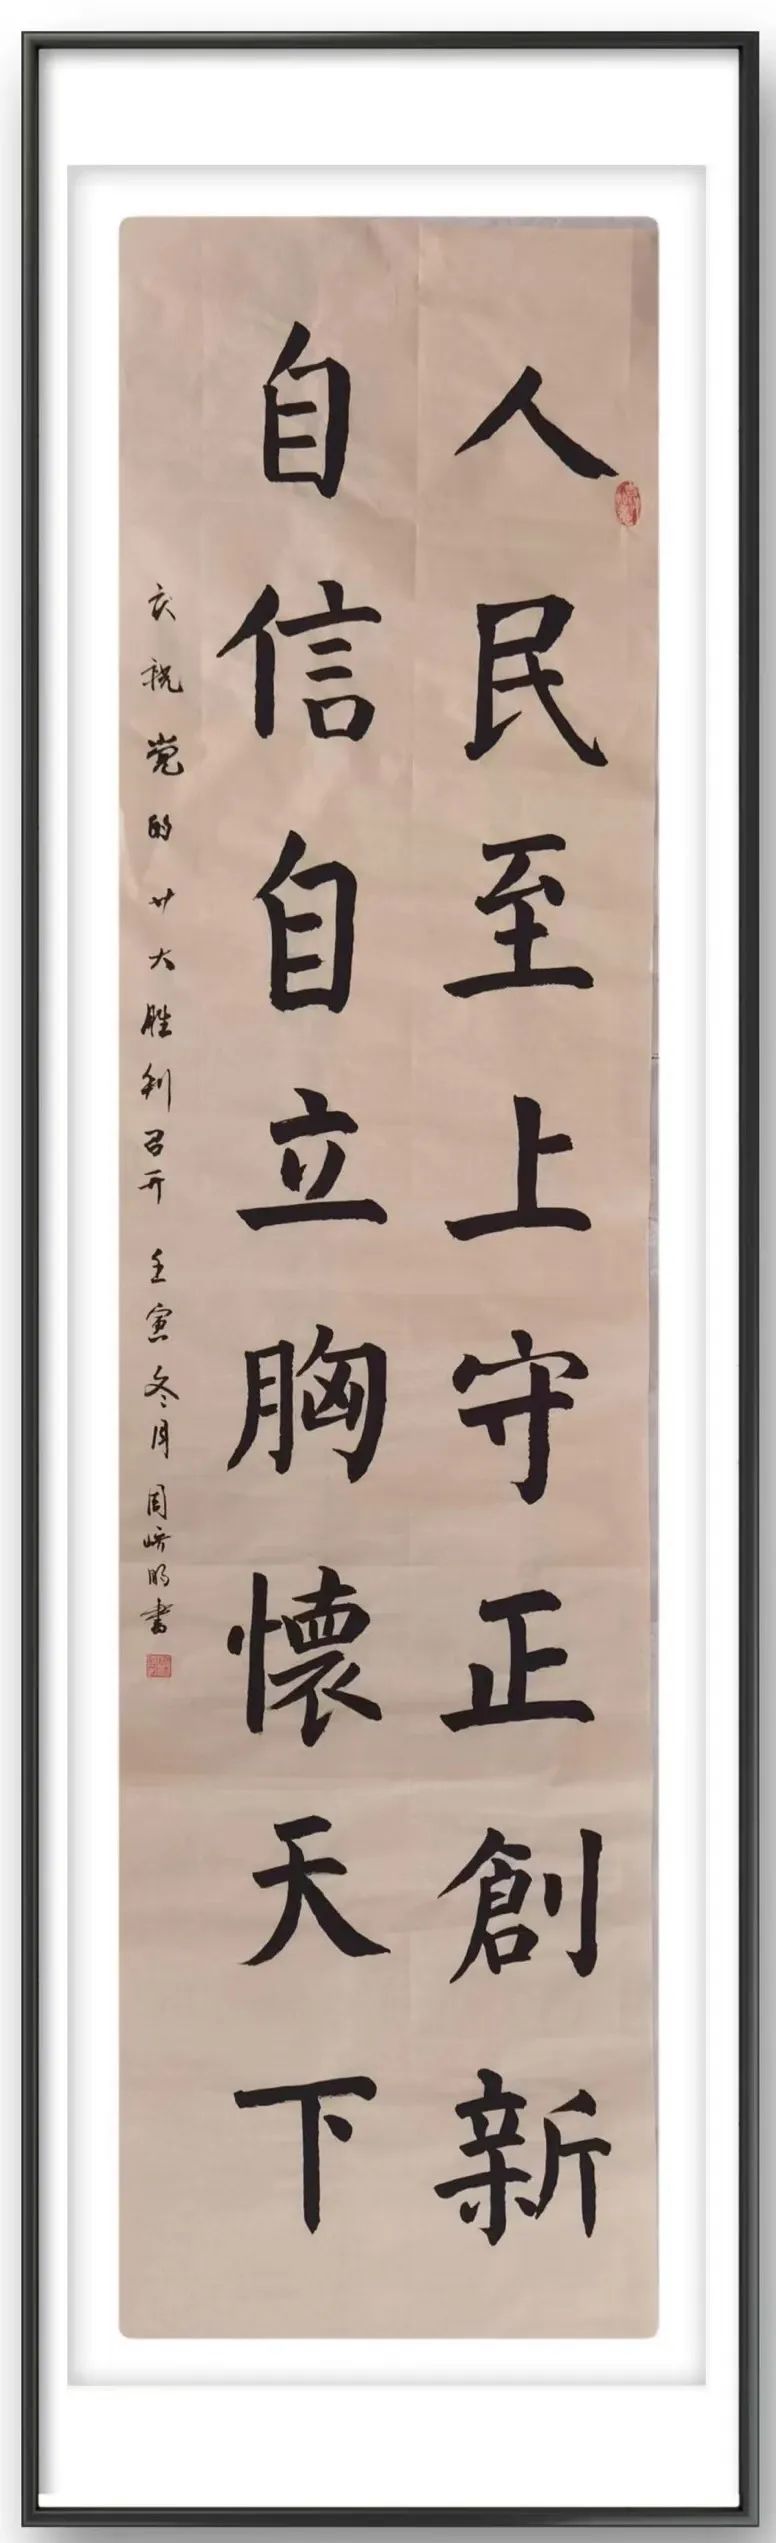 人民至上守正創新
自信自立胸懷天下
庆祝党的廿大胜利召开 壬寅冬月 周峤明书